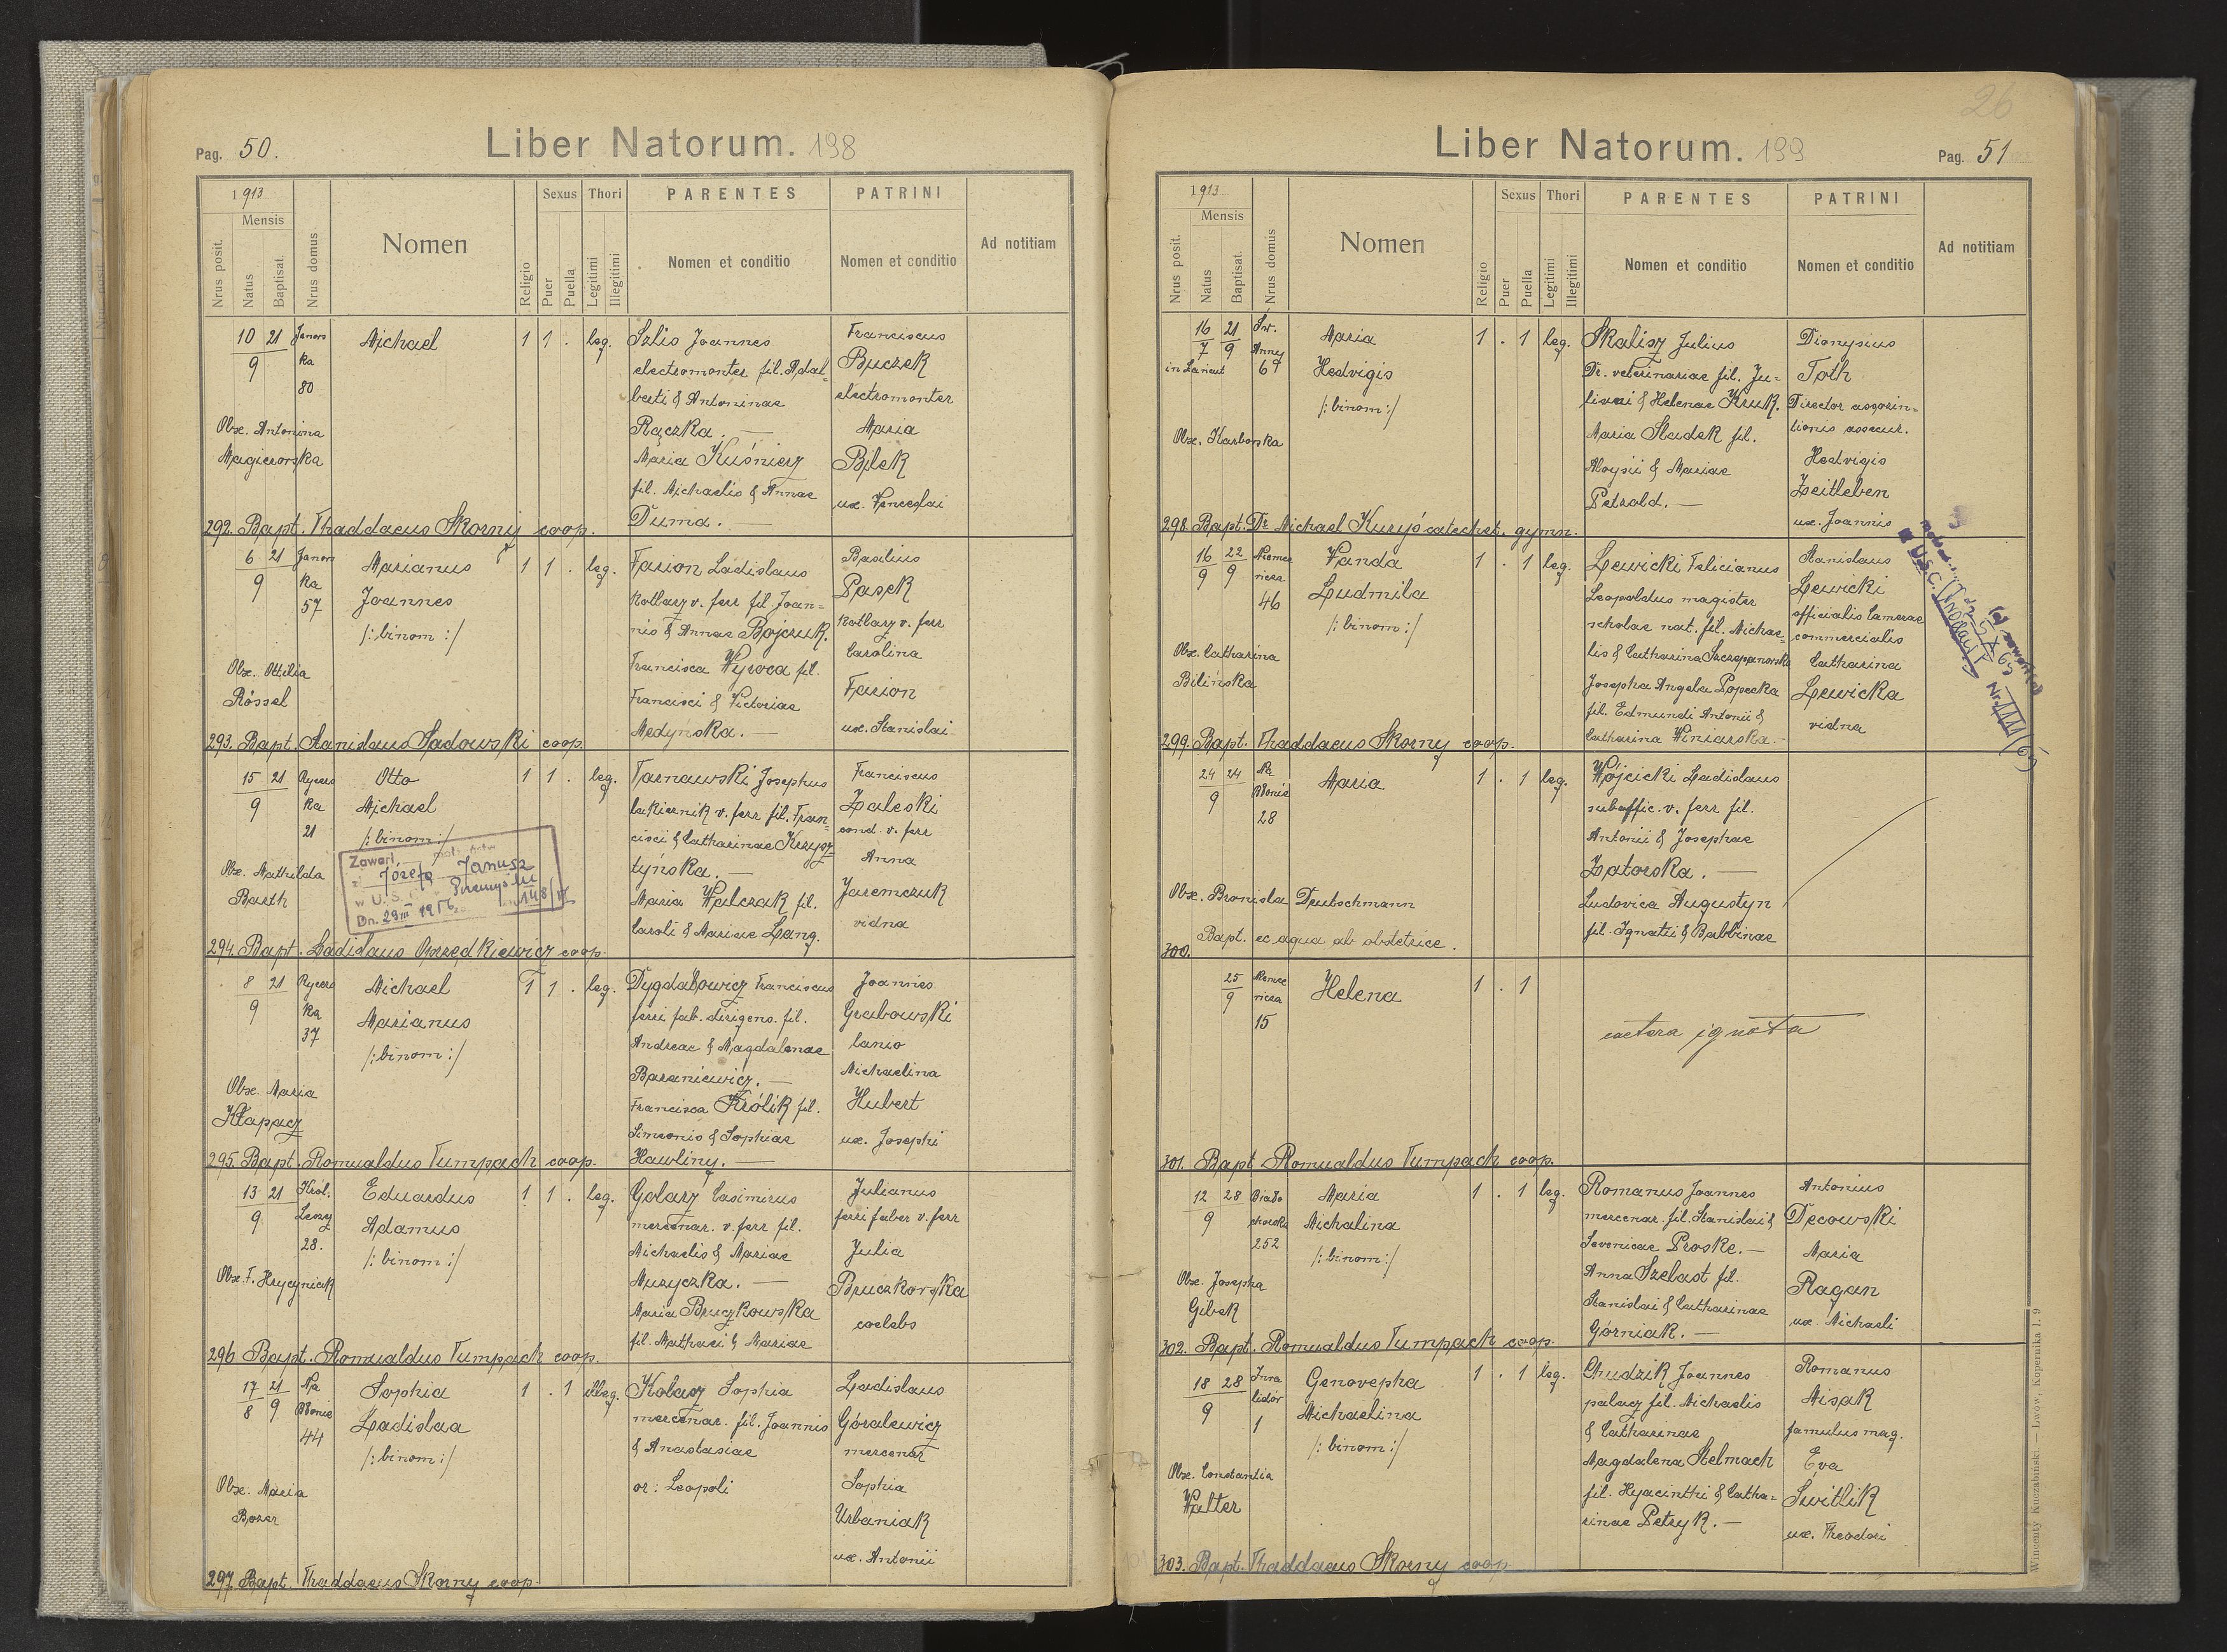 Pag. 50.
Liber Natorum. 198
1913
Mensis
Nrus posit.
Natus
Baptisat.
Nrus domus
Nomen
Religio
Sexus
Puer
Puella
Thori
Legitimi
Illegitimi
PARENTES
Nomen et conditio
PATRINI
Nomen et conditio
Ad notitiam
10 21 Janows
9 ka
80
Michael
1 1 . leg.
Szlis Joannes
electromonter fil. Adal-
berti & Antoninae
Rączka. —
Maria Kuśnierz
fil. Michaelis & Annae
Duma. —
Franciscus
Buczek
electromonter
Maria
Bilek
ux. Venceslai
Obx. Antonina
Magierowska
292. Bapt. Thaddaeus Skorny coop.
6 21 Janows
9 ka
57
Marianus
Joannes
/: binom :/
1 1 . leg.
Farion Ladislaus
kotlarz v. ferr fil. Joan=
nis & Annae Bojczuk.
Francisca Wyrova fil.
Francisci & Victoriae
Medynska. —
Basilius
Pasek
kotlarz v. ferr
Carolina
Farion
ux. Stanislai
Obx. Ottilia
Rössel
293. Bapt. Stanislaus Sadowski coop.
15 21 Rycers
9 ka
21
Otto
Michael
/: binom :/
1 1 . leg.
Tarnawski Josephus
lakiernik v. ferr fil. Fran=
cisci & Catharinae Krzysz-
tyńska. —
Maria Walczak fil.
Caroli & Mariae Lang.
Franciscus
Zaleski
cond. v. ferr
Anna
Jaremczuk
vidua
Obx. Mathilda
Barth
Zawarł
z Józefą Janusz
w U.S.C. Przemyślu
Dn. 29 III 1956 148/IV
294. Bapt. Ladislaus Opszędkiewicz coop.
8 21 Rycers
9 ka
37
Michael
Marianus
/: binom :/
1 1 . leg.
Dygdałowicz Franciscus
ferri fab. dirigens. fil.
Andreae & Magdalenae
Baraniewicz. —
Francisca Królik fil.
Simeonis & Sophiae
Hawliny. —
Joannes
Grabowski
lanio
Michaelina
Hubert
ux. Josephi
Obx. Maria
Kłapacz
295. Bapt. Romualdus Tumpach coop.
13 21 Król.
9 Leszy
28.
Eduardus
Adamus
/: binom :/
1 1 . leg.
Golarz Casimirus
mercenar. v. ferr fil.
Michaelis & Mariae
Muzyczka. —
Maria Bruczkowska
fil. Mathaei & Mariae
Julianus
ferri faber v. ferr
Julia
Bruczkowska
coelebs
Obx. F. Hrycyniak
296 Bapt. Romualdus Tumpach coop.
17 21 Na
8 9 Błonie
44
Sophia
Ladislaa
/: binom :/
1 . 1 illeg.
Kolarz Sophia
mercenar. fil. Joannis
& Anastasiae
or: Leopoli
Ladislaus
Góralewicz
mercenar
Sophia
Urbaniak
ux. Antonii
Obx. Maria
Bozer
297. Bapt. Thaddaeus Skorny coop.
26
Liber Natorum. 199
Pag. 51
1913
Mensis
Nrus posit.
Natus
Baptisat.
Nrus domus
Nomen
Religio
Sexus
Puer
Puella
Thori
Legitimi
Illegitimi
PARENTES
Nomen et conditio
PATRINI
Nomen et conditio
Ad notitiam
16 21 Św.
7 9 Anny
in Łańcut 67
Maria
Hedvigis
/: binom :/
1 . 1 leg.
Skalisz Julius
Dr. veterinariae fil. Ju=
liani & Helenae Kruk.
Maria Sladek fil.
Aloysii & Mariae
Petzold. —
Dionysius
Toth
Director assosin=
tionis assecur.
Hedvigis
Zeitleben
ux. Joannis
Obx. Karbowska
298. Bapt. Dr Michael Kuryś catechet. gymn.
16 22 Niemce
9 9 wicza
46
Wanda
Ludmila
/: binom :/
1 . 1 leg.
Lewicki Felicianus
Leopoldus magister
scholae nat. fil. Michae=
lis & Catharina Szczepanowska
Josepha Angela Popecka
fil. Edmundi Antonii &
Catharina Winiarska. —
Stanislaus
Lewicki
officialis Camerae
commercialis
Catharina
Lewicka
vidua
U.S.C.
Nr. III
Obx. Catharina
Bilińska
299. Bapt. Thaddaeus Skorny coop.
24 24 Na
9 Błonie
28
Maria
1 . 1 leg.
Wójcicki Ladislaus
suboffic. v. ferr fil.
Antonii & Josephae
Zatorska. —
Ludovica Augustyn
fil. Ignatii & Balbinae
Obx. Bronisla Deutschmann
Bapt. ex aqua ab obstetrice.
300.
25 Niemce
9 wicza
15
Helena
1 . 1
caetera ignota
301. Bapt Romualdus Tumpach coop.
12 28 Biało
9
252
Maria
Michalina
/: binom :/
1 . 1 leg.
Romanus Joannes
mercenar. fil. Stanislai &
Sevenicae Proske. —
Anna Szelast fil.
Stanislai & Catharinae
Górniak. —
Antonius
Decowski
Maria
Ragan
ux. Michaeli
Obx. Josepha
Gibek
302. Bapt. Romualdus Tumpach coop.
18 28 Inva
9 lidów
1
Genovepha
Michaelina
/: binom :/
1 . 1 leg.
Chudzik Joannes
palacz fil. Michaelis
& Catharinae
Magdalena Stelmach
fil. Hyacinthi & Catha=
rinae Petryk. —
Romanus
Misak
famulus mag.
Eva
Świtlik
ux. Theodori
Obx. Constantia
Walter
303. Bapt. Thaddaeus Skorny coop
Wincenty Kuczabiński. — Lwów, Kopernika l. 9